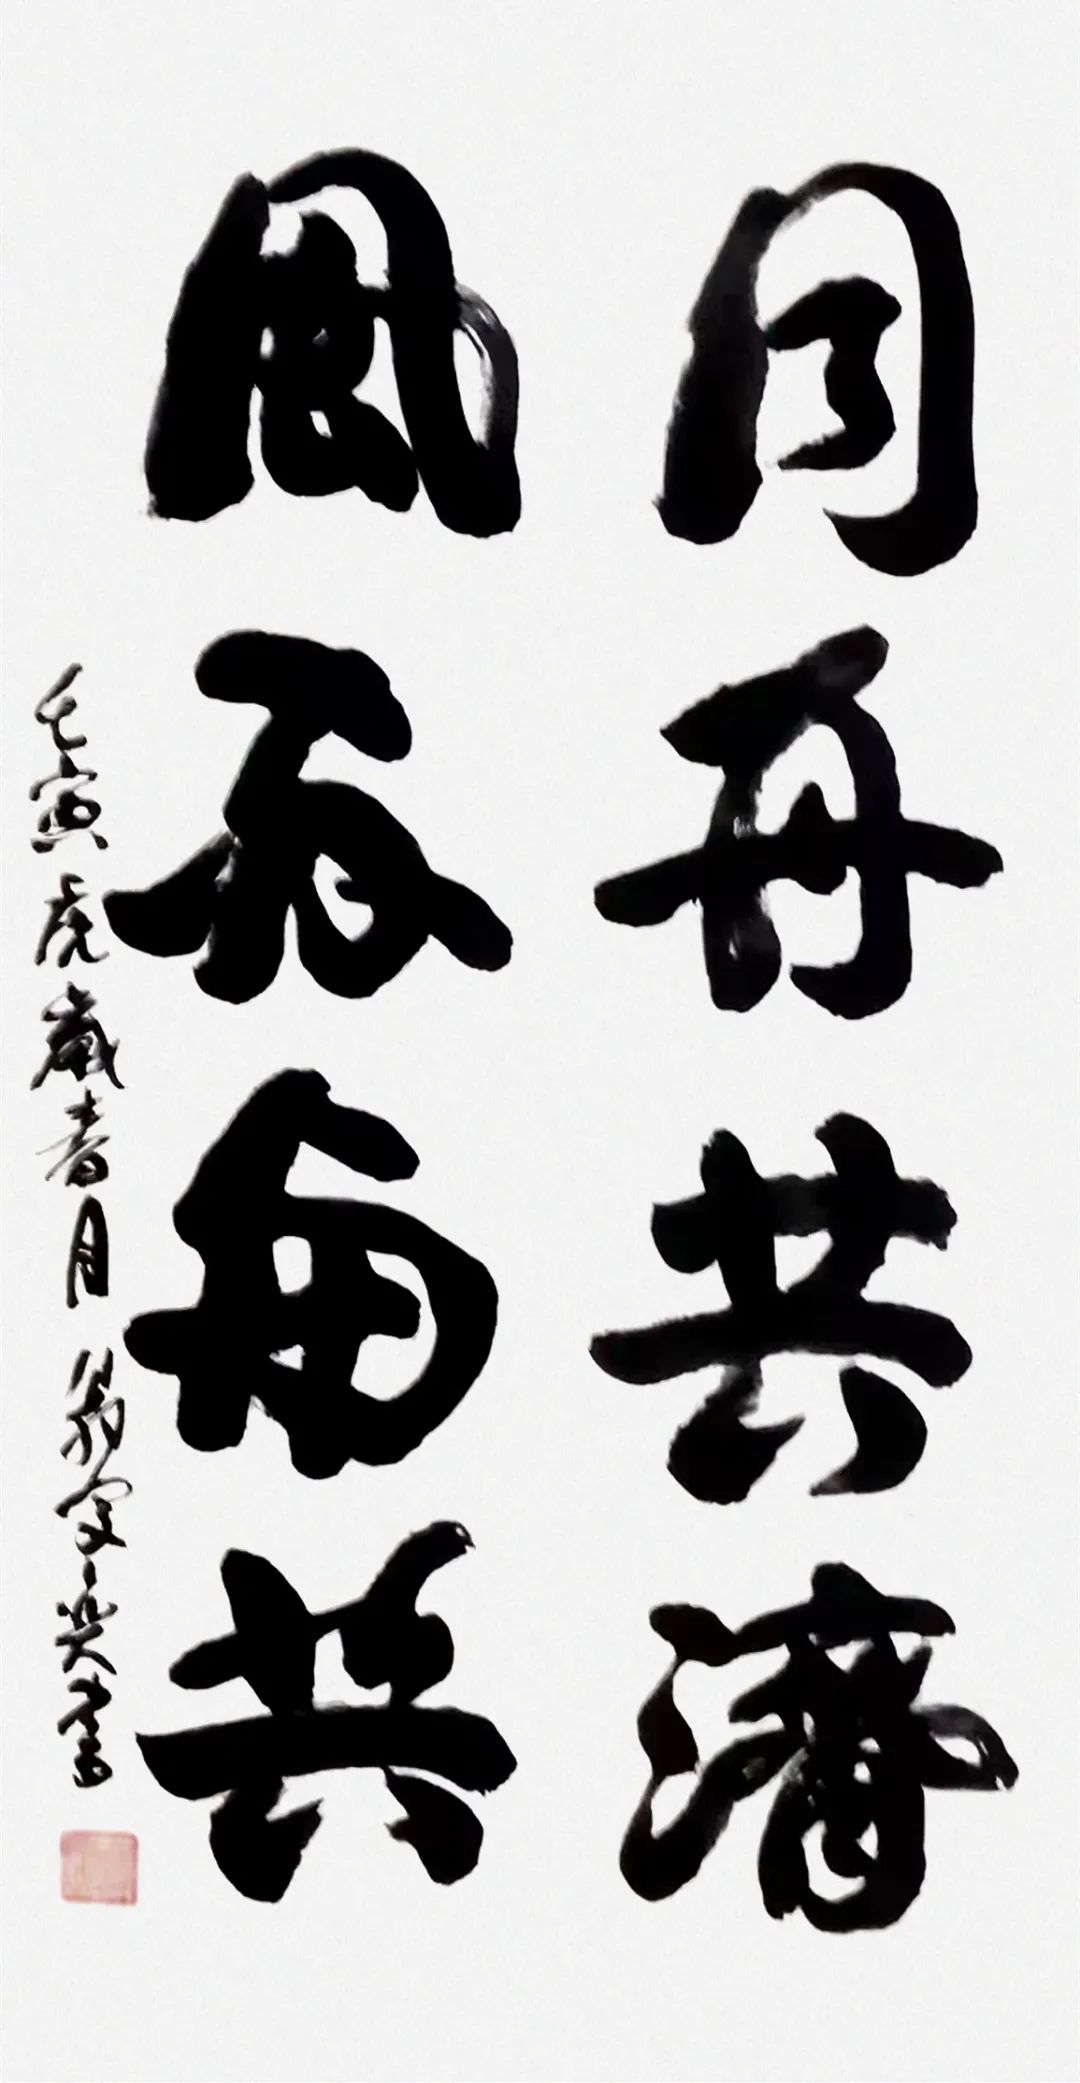 同舟共濟
風雨與共
壬寅虎歲春月 翁 書